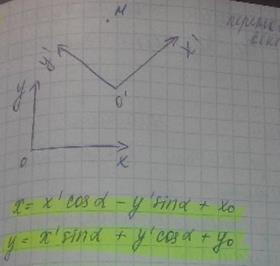 M
y'
x'
y
O'
O
x
x = x' cos α - y' sin α + x₀
y = x' sin α + y' cos α + y₀